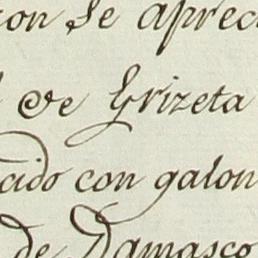 con se aprec
de Grizeta
cido con galon
de Damasco